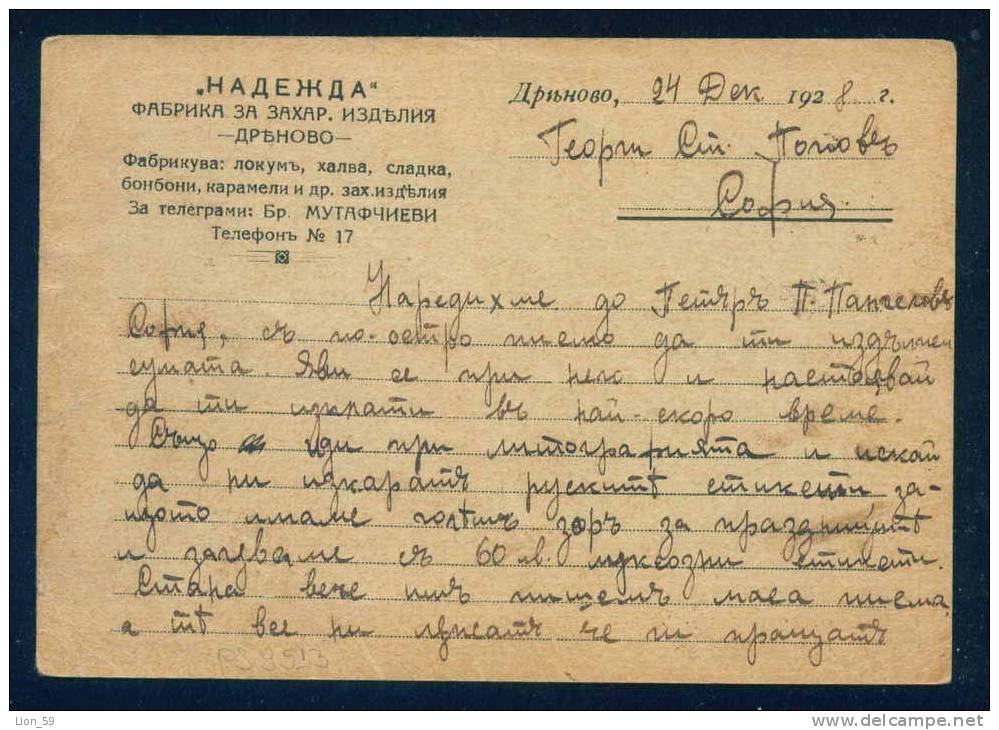 „НАДЕЖДА“
ФАБРИКА ЗА ЗАХАР. ИЗДѢЛИЯ
—ДРѢНОВО—
Фабрикува: локумъ, халва, сладка,
бонбони, карамели и др. зах.издѣлия
За телеграми: Бр. МУТАФЧИЕВИ
Телефонъ № 17
Дрѣново, 24 Дек 1928 г.
Георги Ст. Поповъ
София
Наредихме до Петъръ П. Пангеловъ
София, съ по-остро писмо да ти издължи
сумата. Яви се при него и настоявай
да ти изплати въ най-скоро време.
Също иди при литографията и искай
да ни изкаратъ рускитѣ етикети за-
щото имаме голѣмъ зоръ за празницитѣ
и 60 лв. луксозни етикети.
Стара вече имъ пишемъ маса писма
а тѣ все ни лъжатъ че ги пращатъ
Lion_59
www.delcampe.net